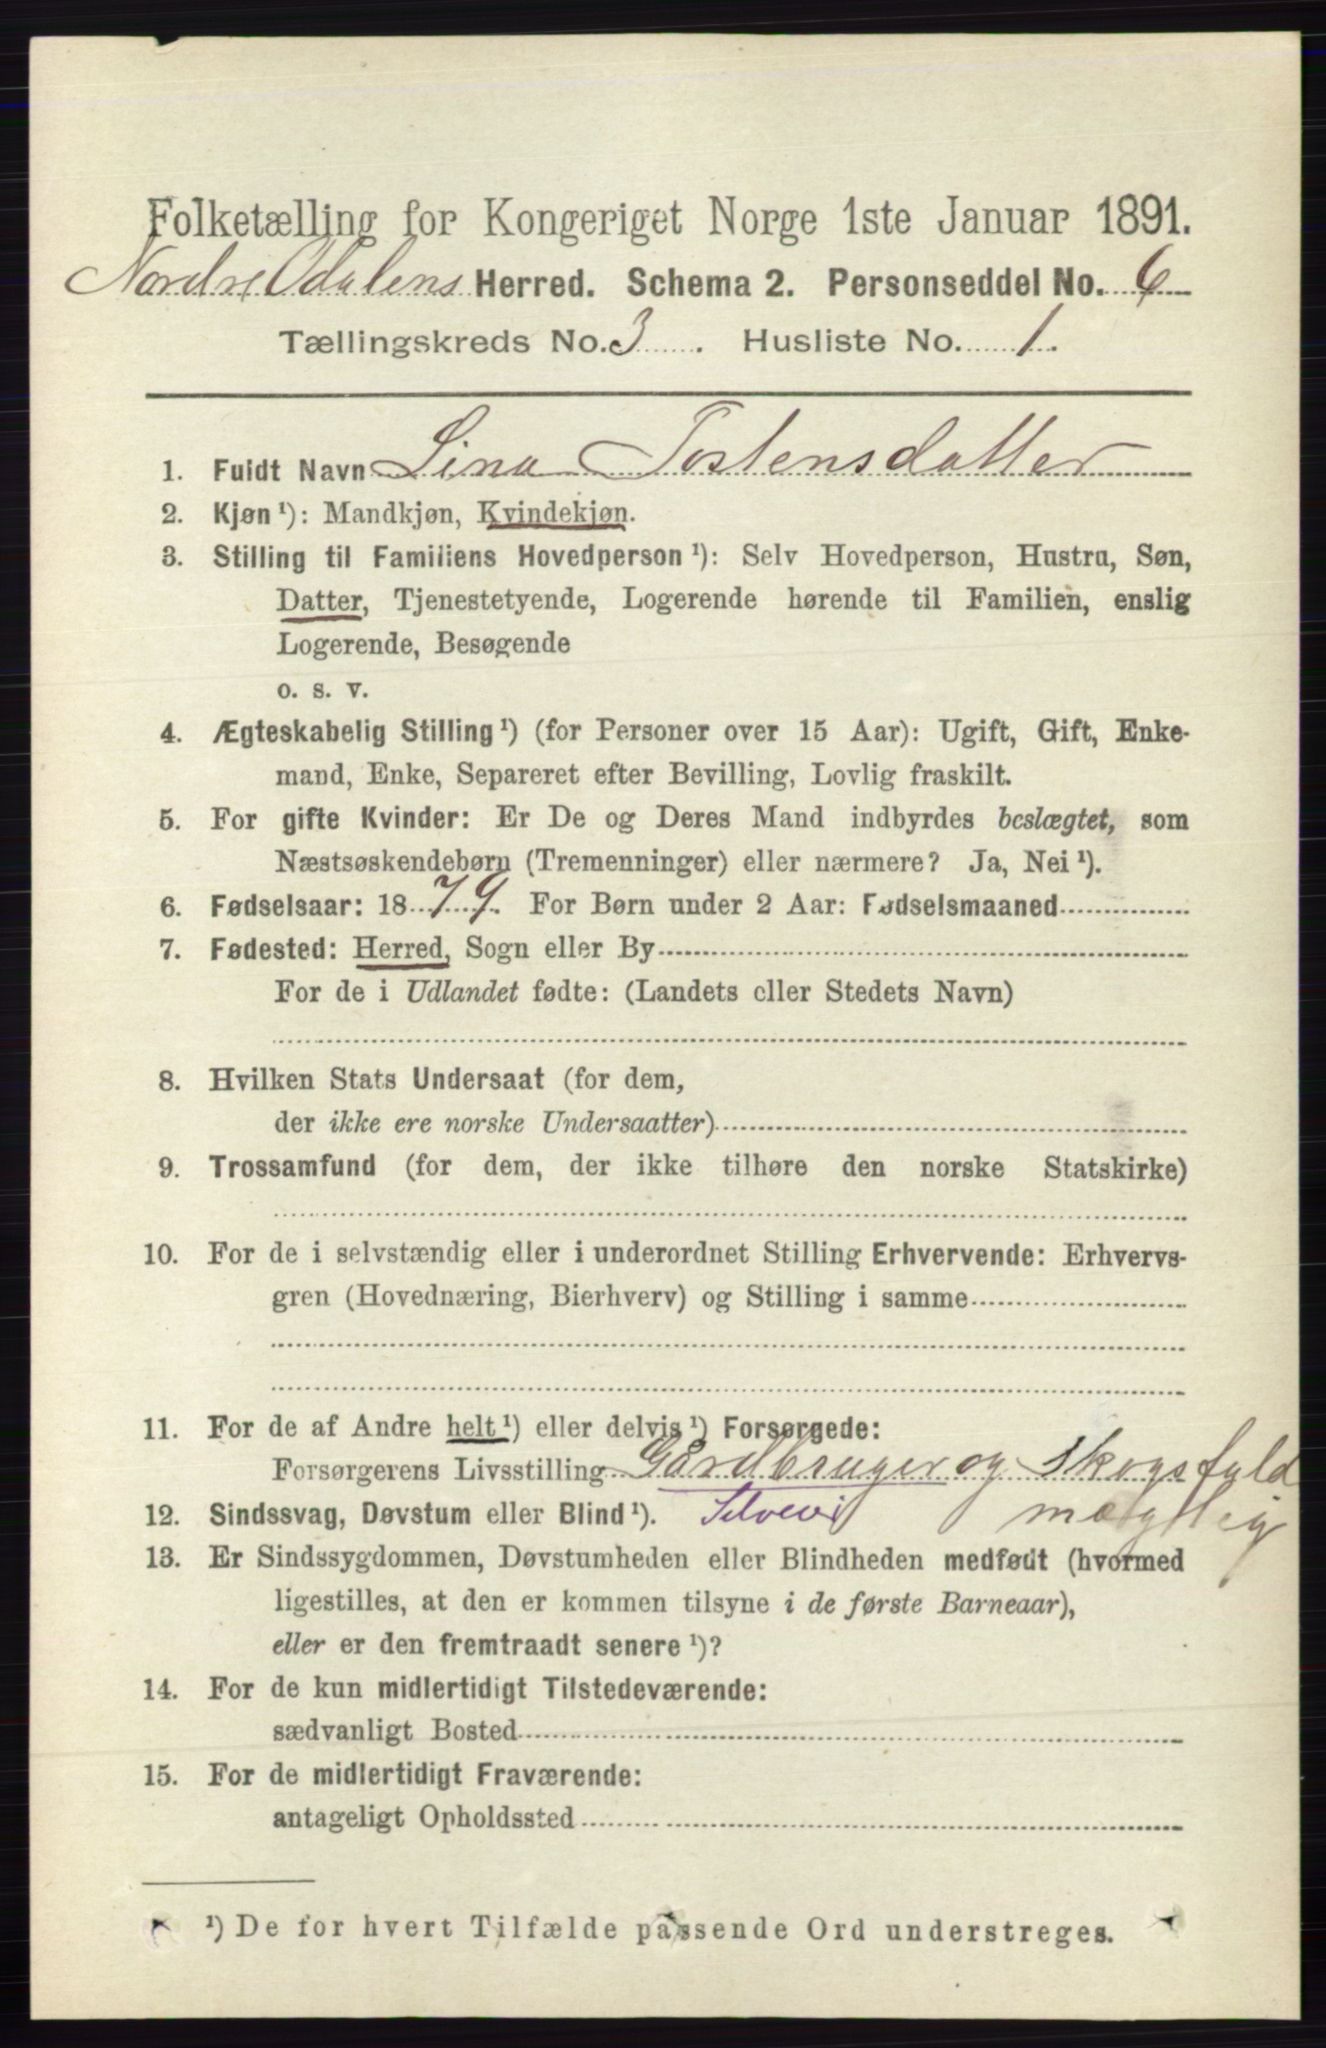 Folketælling for Kongeriget Norge 1ste Januar 1891.
Nordre Odalens Herred. Schema 2. Personseddel No. 6
Tællingskreds No. 3. Husliste No. 1.
1. Fuldt Navn Lina Tostensdatter
2. Kjøn ¹): Mandkjøn, Kvindekjøn.
3. Stilling til Familiens Hovedperson ¹): Selv Hovedperson, Hustru, Søn,
Datter, Tjenestetyende, Logerende hørende til Familien, enslig
Logerende, Besøgende
o. s. v.
4. Ægteskabelig Stilling ¹) (for Personer over 15 Aar): Ugift, Gift, Enke-
mand, Enke, Separeret efter Bevilling, Lovlig fraskilt.
5. For gifte Kvinder: Er De og Deres Mand indbyrdes beslægtet, som
Næstsøskendebørn (Tremenninger) eller nærmere? Ja, Nei ¹).
6. Fødselsaar: 1879. For Børn under 2 Aar: Fødselsmaaned
7. Fødested: Herred, Sogn eller By
For de i Udlandet fødte: (Landets eller Stedets Navn)
8. Hvilken Stats Undersaat (for dem,
der ikke ere norske Undersaatter)
9. Trossamfund (for dem, der ikke tilhøre den norske Statskirke)
10. For de i selvstændig eller i underordnet Stilling Erhvervende: Erhvervs-
gren (Hovednæring, Bierhverv) og Stilling i samme
11. For de af Andre helt ¹) eller delvis ¹) Forsørgede:
Forsørgerens Livsstilling Gårdbruger og skogsfuld
mægtig
12. Sindssvag, Døvstum eller Blind ¹). Selveier
13. Er Sindssygdommen, Døvstumheden eller Blindheden medfødt (hvormed
ligestilles, at den er kommen tilsyne i de første Barneaar),
eller er den fremtraadt senere ¹)?
14. For de kun midlertidigt Tilstedeværende:
sædvanligt Bosted
15. For de midlertidigt Fraværende:
antageligt Opholdssted
¹) De for hvert Tilfælde passende Ord understreges.